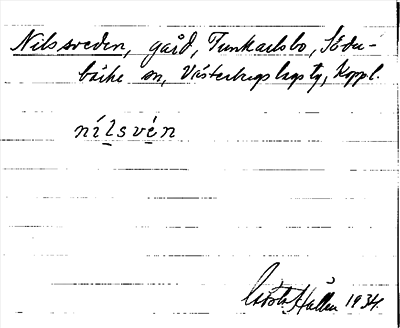 Nilssveden, gård, Tunkarlsbo, Söder-
bärke sn, Västerbergslags tg, Koppl.
nílsvén
Gösta Hallén 1934